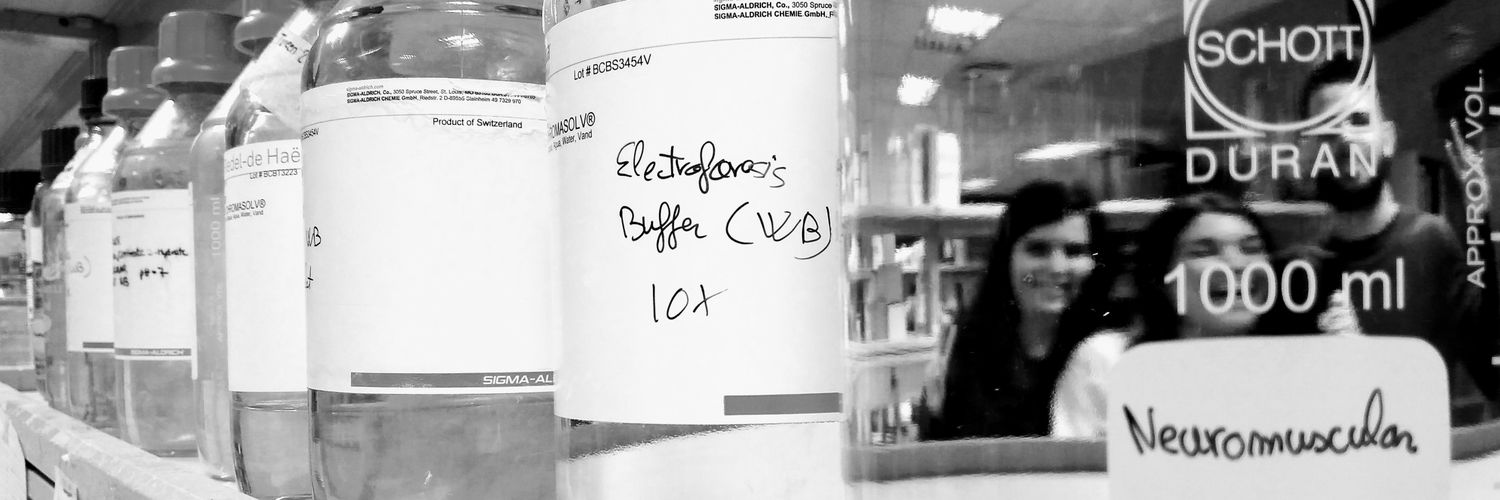 sigma-aldrich.com
SIGMA-ALDRICH, Co., 3050 Spruce Street, St. Louis,
SIGMA-ALDRICH CHEMIE GmbH, Riedstr. 2 D-89555 Steinheim 49 7329 970
Product of Switzerland
SIGMA-AL
edel-de Haë
Lot # BCBT3223
HROMASOLV®
Aqua, Water, Vand
1000 ml
pH=7
SIGMA-ALDRICH
WB
SIGMA-ALDRICH, Co., 3050 Spruce
SIGMA-ALDRICH CHEMIE GmbH,
Lot # BCBS3454V
ROMASOLV®
Aqua, Water, Vand
Electroforesis
Buffer (WB)
10x
SCHOTT
DURAN
APPROX. VOL.
1000 ml
Neuromuscular